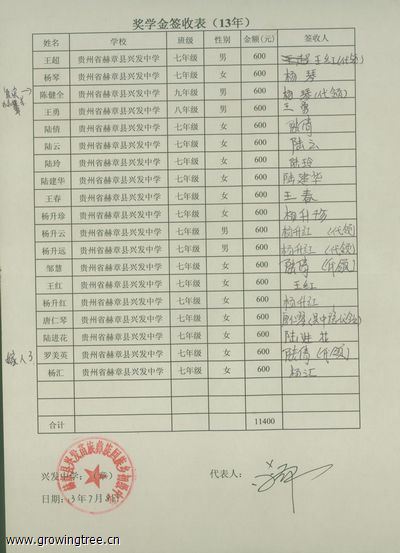 奖学金签收表（13年）
姓名 学校 班级 性别 金额（元） 签收人
王超 贵州省赫章县兴发中学 七年级 男 600 王红(代领)
杨琴 贵州省赫章县兴发中学 七年级 女 600 杨琴
陈健全 贵州省赫章县兴发中学 九年级 男 600 杨琴(代领)
王勇 贵州省赫章县兴发中学 八年级 男 600 王勇
陆倩 贵州省赫章县兴发中学 七年级 女 600 陆倩
陆云 贵州省赫章县兴发中学 七年级 女 600 陆云
陆玲 贵州省赫章县兴发中学 七年级 女 600 陆玲
陆建华 贵州省赫章县兴发中学 七年级 女 600 陆建华
王春 贵州省赫章县兴发中学 七年级 女 600 王春
杨升珍 贵州省赫章县兴发中学 七年级 女 600 杨升珍
杨升云 贵州省赫章县兴发中学 七年级 男 600 杨升江(代领)
杨升远 贵州省赫章县兴发中学 七年级 男 600 杨升江(代领)
邹慧 贵州省赫章县兴发中学 七年级 女 600 陆倩(代领)
王红 贵州省赫章县兴发中学 七年级 女 600 王红
杨升红 贵州省赫章县兴发中学 七年级 女 600 杨升江
唐仁琴 贵州省赫章县兴发中学 七年级 女 600
陆进花 贵州省赫章县兴发中学 七年级 女 600 陆进花
嫁人了 罗美英 贵州省赫章县兴发中学 七年级 女 600 陆倩(代领)
杨汇 贵州省赫章县兴发中学 七年级 女 600 杨汇
合计 11400
兴发中学：（章） 代表人：
日期：13年7月
www.growingtree.cn